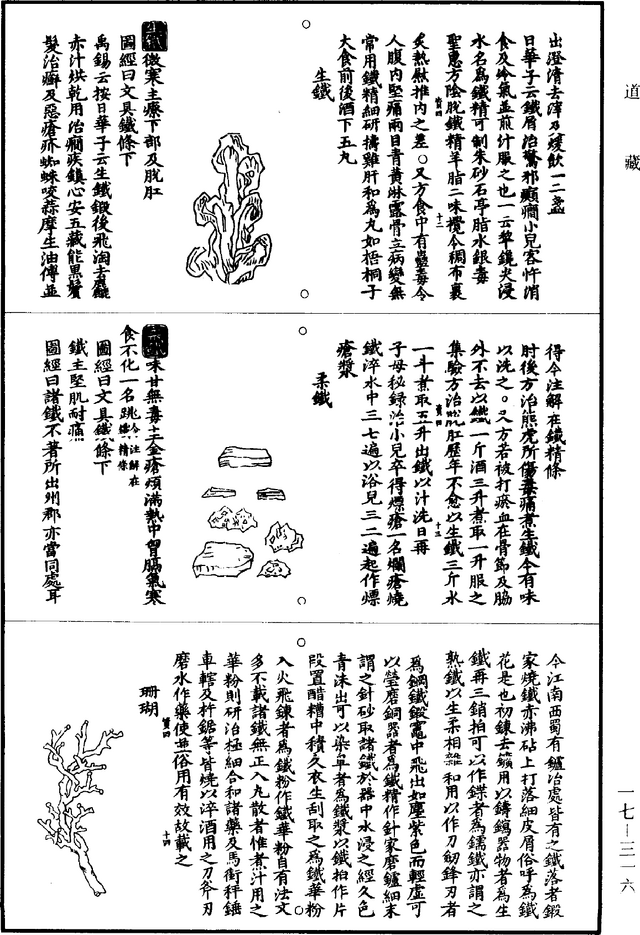 道藏
出澄清去滓及煖飲一二盞
日華子云鐵屑治驚邪癲癇小兒客忤消
食及冷氣並煎汁服之也一云犂鏡尖浸
水名為鐵精可制朱砂石亭脂水銀毒
聖惠方陰脫鐵精羊脂二味攪令稠布裹
炙熱慰推內之差○又方食中有蠱毒令
人腹內堅痛兩目青黃淋露骨立病變無
常用鐵精細研擣雞肝和為丸如梧桐子
大食前後酒下五丸
生鐵
生鐵微寒主療下部及脫肛
圖經曰文具鐵條下
禹錫云按日華子云生鐵鍛後飛淘去麤
赤汁烘乾用治癇疾鎮心安五藏能黑鬢
髮治癬及惡瘡疥蜘蛛咬蒜摩生油傅並
得今注解在鐵精條
肘後方治熊虎所傷毒痛煮生鐵令有味
以洗之○又方若被打瘀血在骨節及脇
外不去以鐵一斤酒三升煮取一升服之
集驗方治脫肛歷年不愈以生鐵三斤水
一斗煮取五升出鐵以汁洗日再
子母秘錄治小兒卒得熛瘡一名爛瘡燒
鐵淬水中三七遍以浴兒三二遍起作熛
瘡漿
柔鐵
味甘無毒主金瘡煩滿熱中胷膈氣塞
食不化一名跳鐵今注解在鐵精條
圖經曰文具鐵條下
鐵主堅肌耐痛
圖經曰諸鐵不著所出州郡亦當同處耳
今江南西蜀有鑪冶處皆有之鐵落者鍛
家燒鐵赤沸砧上打落細皮屑俗呼為鐵
花是也初鍊去鑛用以鑄鎢器物者為生
鐵再三銷拍可以作鍱者為鑐鐵亦謂之
熟鐵以生柔相雜和用以作刀劒鋒刃者
為鋼鐵鍛竈中飛出如塵紫色而輕虛可
以瑩磨銅器者為鐵精作針家磨鑢細末
謂之針砂取諸鐵於器中水浸之經久色
青沫出可以染皁者為鐵漿以鐵拍作片
段置醋糟中積久衣生刮取之為鐵華粉
入火飛鍊者為鐵粉作鐵華粉自有法文
多不載諸鐵無正入丸散者惟煮汁用之
華粉則研治極細合和諸藥及馬銜秤錘
車轄及杵鋸等皆燒以淬酒用之刀斧刃
磨水作藥使並俗用有效故載之
珊瑚
一七—三一六